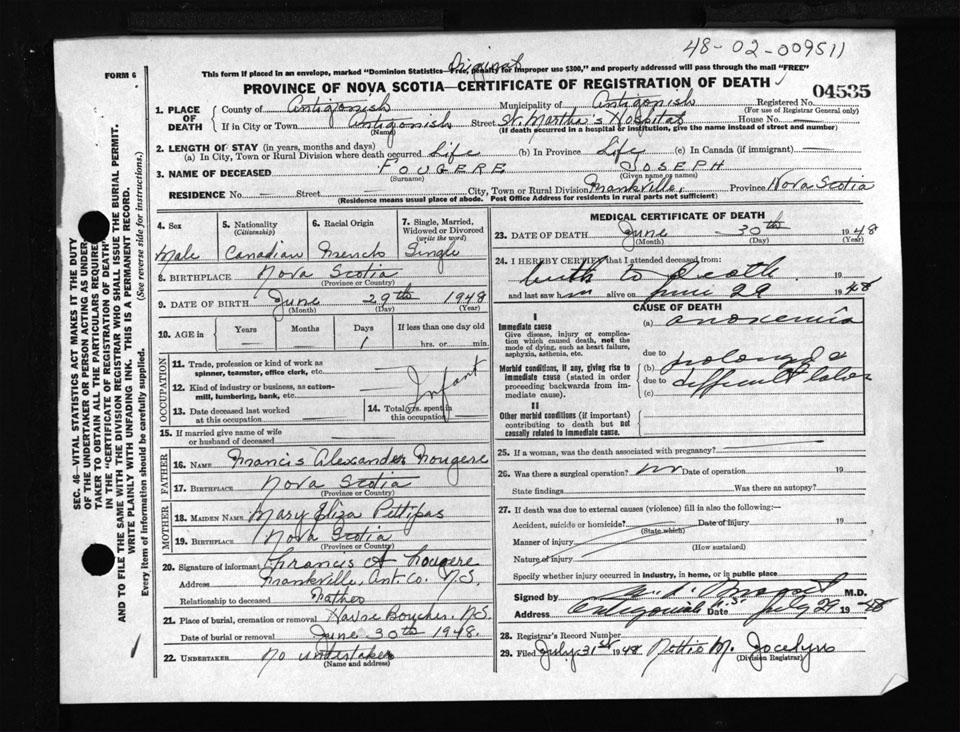 48-02-009511
FORM 6
This form if placed in an envelope, marked "Dominion Statistics—Free, penalty for improper use $300," and properly addressed will pass through the mail "FREE"
PROVINCE OF NOVA SCOTIA—CERTIFICATE OF REGISTRATION OF DEATH
04535
1. PLACE OF DEATH County of Antigonish Municipality of Antigonish Registered No.
(For use of Registrar General only)
If in City or Town Antigonish Street St. Martha's Hospital House No. —
(Name) (If death occurred in a hospital or institution, give the name instead of street and number)
2. LENGTH OF STAY (in years, months and days)
(a) In City, Town or Rural Division where death occurred Life (b) In Province Life (c) In Canada (if immigrant) —
3. NAME OF DECEASED FOUGERE JOSEPH
(Surname) (Given name or names)
RESIDENCE No. — Street — City, Town or Rural Division Frankville, Province Nova Scotia
(Residence means usual place of abode. Post Office Address for residents in rural parts not sufficient)
4. Sex
Male
5. Nationality
(Citizenship)
Canadian
6. Racial Origin
French
7. Single, Married, Widowed or Divorced
(write the word)
Single
8. BIRTHPLACE Nova Scotia
(Province or Country)
9. DATE OF BIRTH June 29th 1948
(Month) (Day) (Year)
10. AGE in Years — Months — Days 1 If less than one day old
hrs. or min.
OCCUPATION
11. Trade, profession or kind of work as spinner, teamster, office clerk, etc.
12. Kind of industry or business, as cotton-mill, lumbering, bank, etc.
Infant
13. Date deceased last worked at this occupation
14. Total yrs. spent in this occupation
15. If married give name of wife or husband of deceased
FATHER
16. NAME Francis Alexander Fougere
17. BIRTHPLACE Nova Scotia
(Province or Country)
MOTHER
18. MAIDEN NAME Mary Eliza Pettipas
19. BIRTHPLACE Nova Scotia
(Province or Country)
20. Signature of informant Francis A Fougere
Address Frankville, Ant. Co. N.S.
Relationship to deceased Father
21. Place of burial, cremation or removal Havre Boucher, N.S.
Date of burial or removal June 30th 1948.
22. UNDERTAKER No undertaker
(Name and address)
MEDICAL CERTIFICATE OF DEATH
23. DATE OF DEATH June 30th 1948
(Month) (Day) (Year)
24. I HEREBY CERTIFY that I attended deceased from:
birth to death 19
and last saw him alive on June 29 1948
CAUSE OF DEATH
I
Immediate cause
Give disease, injury or complication which caused death, not the mode of dying, such as heart failure, asphyxia, asthenia, etc.
(a) anoxemia
due to
Morbid conditions, if any, giving rise to immediate cause (stated in order proceeding backwards from immediate cause).
(b) prolonged &
due to difficult labor
(c)
II
Other morbid conditions (if important) contributing to death but not causally related to immediate cause.
25. If a woman, was the death associated with pregnancy?
26. Was there a surgical operation? no Date of operation 19
State findings Was there an autopsy?
27. If death was due to external causes (violence) fill in also the following:—
Accident, suicide or homicide? Date of injury 19
(State which)
Manner of injury
(How sustained)
Nature of injury
Specify whether injury occurred in industry, in home, or in public place
Signed by M.D.
Address Antigonish N.S. Date July 29 1948
28. Registrar's Record Number
29. Filed July 31st 1948 Nettie M. Jocelyn
(Division Registrar)
SEC. 46—VITAL STATISTICS ACT MAKES IT THE DUTY
OF THE UNDERTAKER OR PERSON ACTING AS UNDER-
TAKER TO OBTAIN ALL THE PARTICULARS REQUIRED
IN THE "CERTIFICATE OF REGISTRATION OF DEATH"
AND TO FILE THE SAME WITH THE DIVISION REGISTRAR WHO SHALL ISSUE THE BURIAL PERMIT.
WRITE PLAINLY WITH UNFADING INK. THIS IS A PERMANENT RECORD.
Every item of information should be carefully supplied. (See reverse side for instructions.)